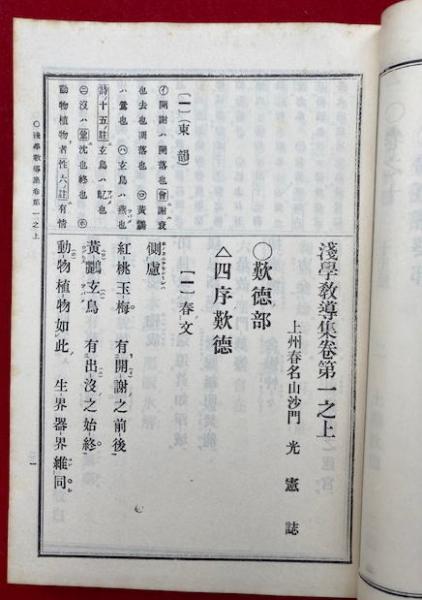 淺學敎導集卷第一之上
上州春名山沙門 光憲誌
○歎德部
△四序歎德
〔一〕春文
側慮
紅桃玉梅。有開謝之前後
黃鸝玄鳥 有出沒之始終
動物植物如此 生界器界維同
〔一〕(東韻)
㋑開謝ハ開落也會謝衰
也去也凋落也㋺黃鸝
ハ鶯也㋩玄鳥ハ燕也
詩十五註玄鳥ハ鳦也
㊁沒ハ沈也終也㋭
動物植物者性六註有情
○淺學敎導集卷第一之上
一